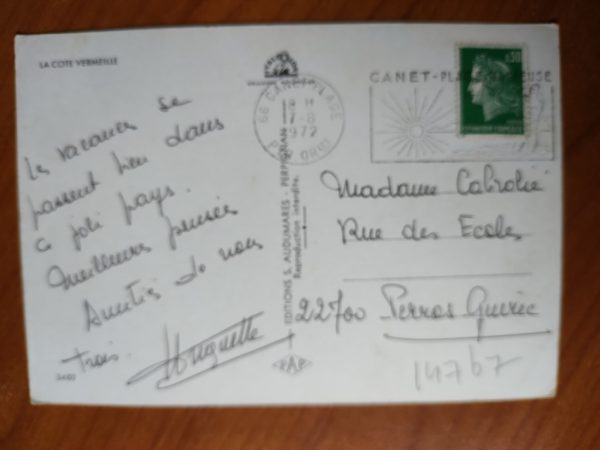 LA COTE VERMEILLE
Les vacances se
passent bien dans
ce joli pays.
Meilleures pensées
Amitiés de nous
trois.
Huguette
EDITIONS S. AUDUMARES - PERPIGNAN
Reproduction interdite.
66 CANET-PLAGE
18 H
17-8
1972
PYR. ORIES
CANET-PLAGE
0,30
REPUBLIQUE FRANÇAISE
Madame
Rue des Ecoles
22700 Perros Guirec
14767
PAP